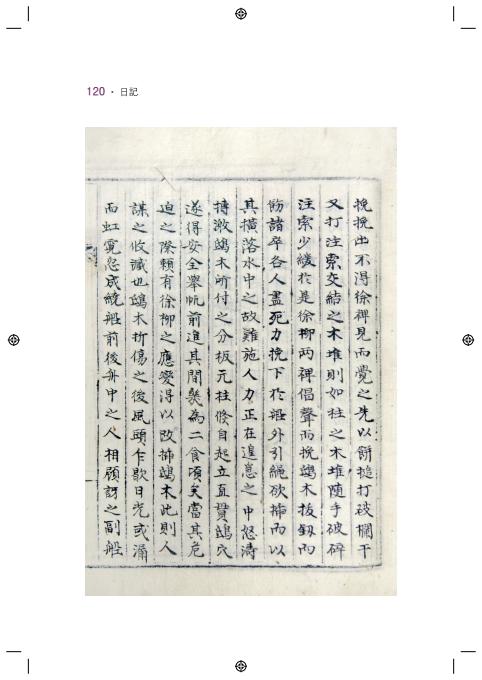 120 • 日記
挽挽出不得徐裨見而覺之先以餠搥打破欄干
又打注索交結之木堆則如柱之木堆隨手破碎
注索少緩於是徐柳两裨倡聲而挽鴟木拔釼而
飭諸卒各人盡死力挽下於船外引繩欲揷而以
其橫落水中之故難施人力正在遑急之中怒濤
搏激鴟木所付之分板元柱倏自起立直貫鴟穴
遂得安全擧帆前進其間幾為二食頃矣當其危
迫之際賴有徐柳之應變得以改揷鴟木此則人
謀之攸讖也鴟木折傷之後風頭乍歇日光或涌
而虹霓忽成繞船前後舟中之人相顧訝之副船